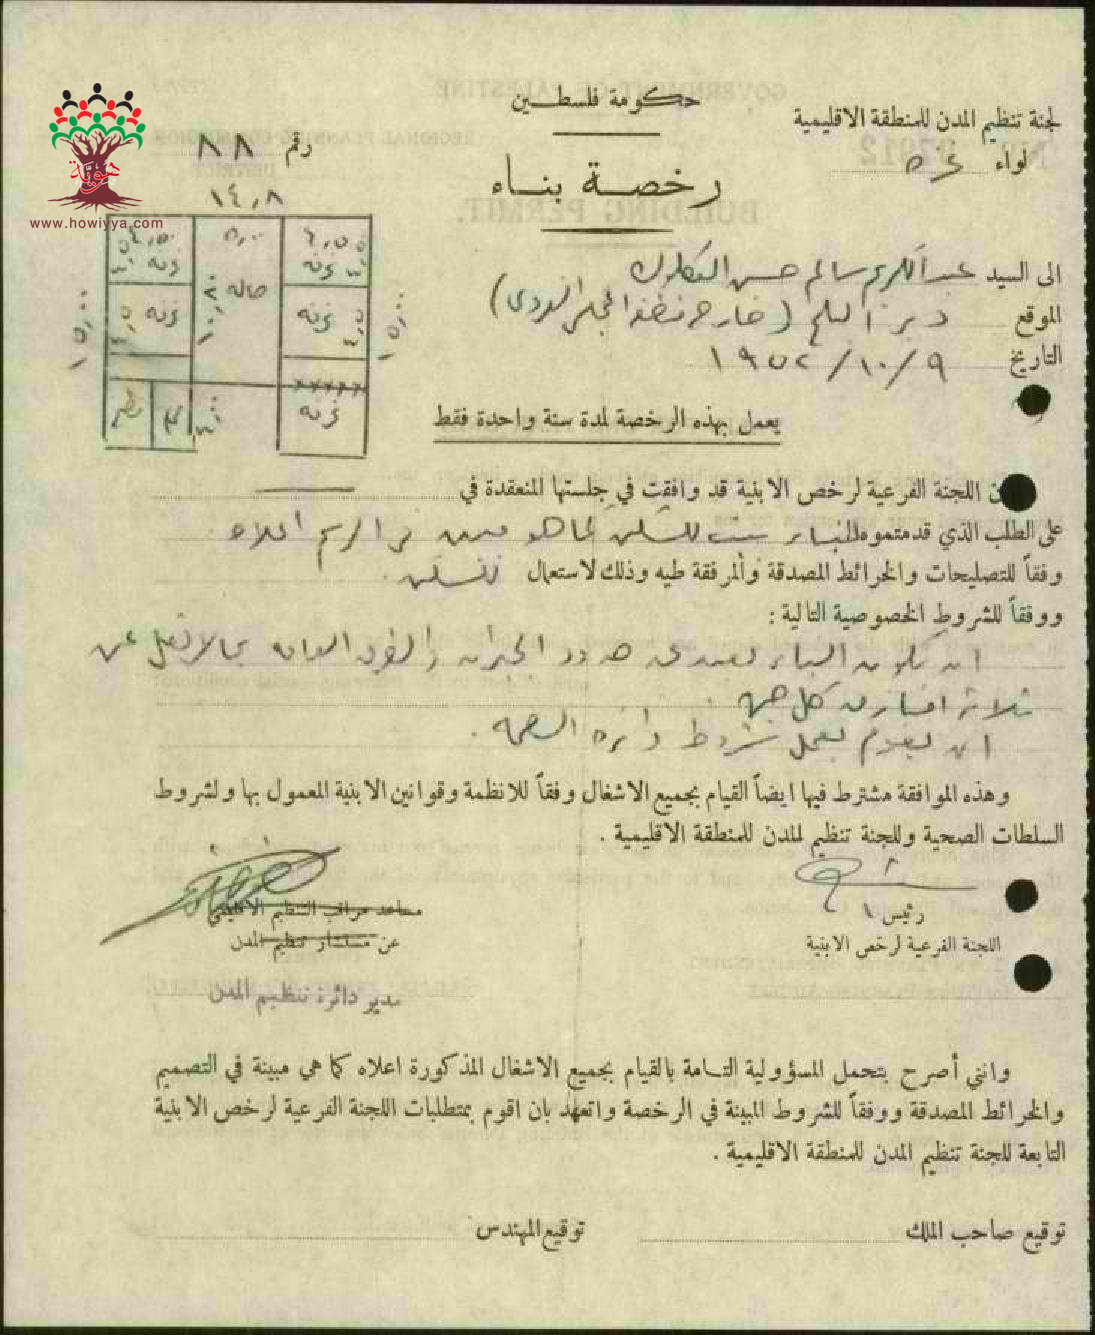 حكومة فلسطين
لجنة تنظيم المدن للمنطقة الاقليمية
لواء غزه
رقم ٨٨
رخصة بناء
هوية
www.howiyya.com
١٤,٨
٥,٠٠
غرفه
غرفه
صاله
١٠,٨٠
غرفه
غرفه
١٥,٠٠
١٥,٠٠
غرفه
الى السيد عبد الكريم سالم حسن
الموقع دير البلح (خارج منطقة المجلس القروى)
التاريخ ٩/١٠/١٩٥٢
يعمل بهذه الرخصة لمدة سنة واحدة فقط
اللجنة الفرعية لرخص الابنية قد وافقت في جلستها المنعقدة في
على الطلب الذي قدمتموه لبناء بيت للسكن كما هو مبين في الرسم اعلاه
وفقاً للتصليحات والخرائط المصدقة والمرفقة طيه وذلك لاستعمال للسكن.
ووفقاً للشروط الخصوصية التالية :
ان يكون البناء بعيد عن حدود الجيران والطرق العامه بما لا يقل عن
ثلاثة امتار من كل جهه
ان يقوم بعمل شروط دائرة الصحه .
وهذه الموافقة مشترط فيها ايضاً القيام بجميع الاشغال وفقاً للانظمة وقوانين الابنية المعمول بها ولشروط
السلطات الصحية وللجنة تنظيم المدن للمنطقة الاقليمية .
مساعد مراقب التنظيم الاقليمي
عن مستشار تنظيم المدن
مدير دائرة تنظيم المدن
رئيس
اللجنة الفرعية لرخص الابنية
وانني أصرح بتحمل المسؤولية التامة بالقيام بجميع الاشغال المذكورة اعلاه كما هي مبينة في التصميم
والخرائط المصدقة ووفقاً للشروط المبينة في الرخصة واتعهد بان اقوم بمتطلبات اللجنة الفرعية لرخص الابنية
التابعة للجنة تنظيم المدن للمنطقة الاقليمية .
توقيع صاحب الملك
توقيع المهندس